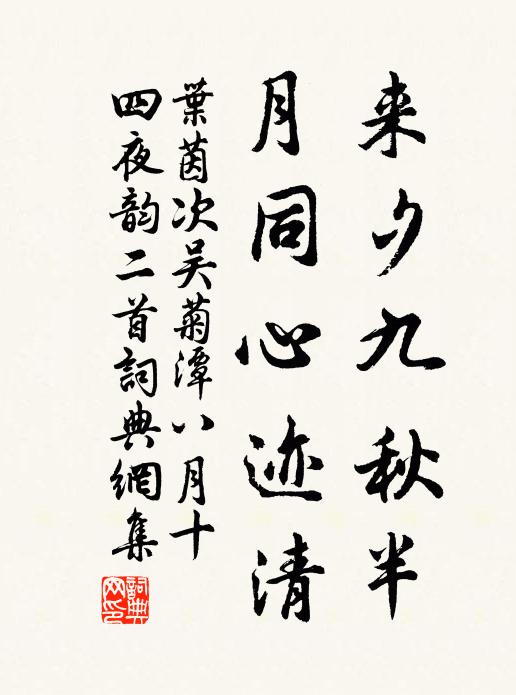 来夕九秋半
月同心迹清
葉茵次吴菊潭八月十
四夜韵二首詞典網集
詞典網印